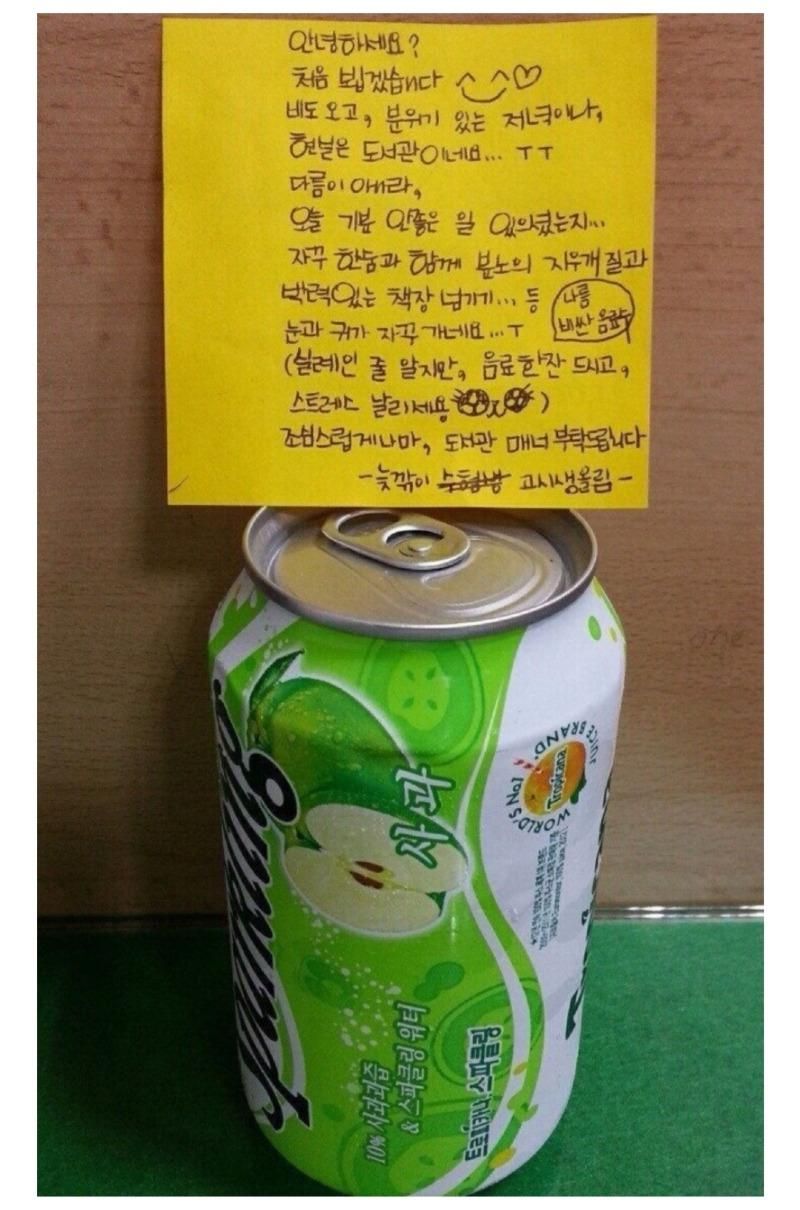 안녕하세요?
처음 뵙겠습니다 ^_^♡
비도 오고, 분위기 있는 저녁이나,
현실은 도서관이네요... ㅜㅜ
다름이 아니라,
오늘 기분 안좋은 일 있으셨는지...
자꾸 한숨과 함께 분노의 지우개질과
박력있는 책장 넘기기... 등
나름
비싼 음료수
눈과 귀가 자꾸 가네요...ㅜ
(실례인 줄 알지만, 음료한잔 드시고,
스트레스 날리세용)
조심스럽게나마, 도서관 매너 부탁드립니다
-늦깎이 수험생 고시생올림-
Sparkling
사과
10% 사과과즙
& 스파클링 워터
트로피카나 스파클링
WORLD'S No.1
JUICE BRAND.
Tropicana